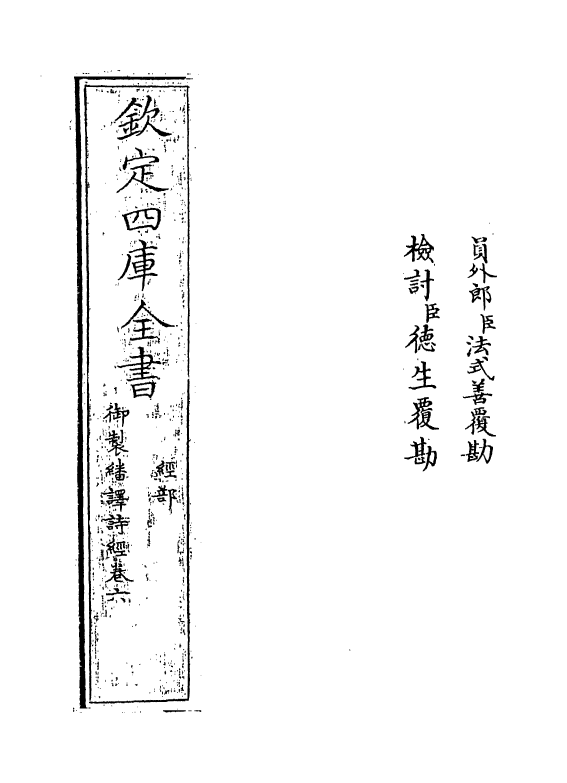 員外郎臣法式善覆勘
檢討臣德生覆勘
欽定四庫全書
經部
御製繙譯詩經卷六